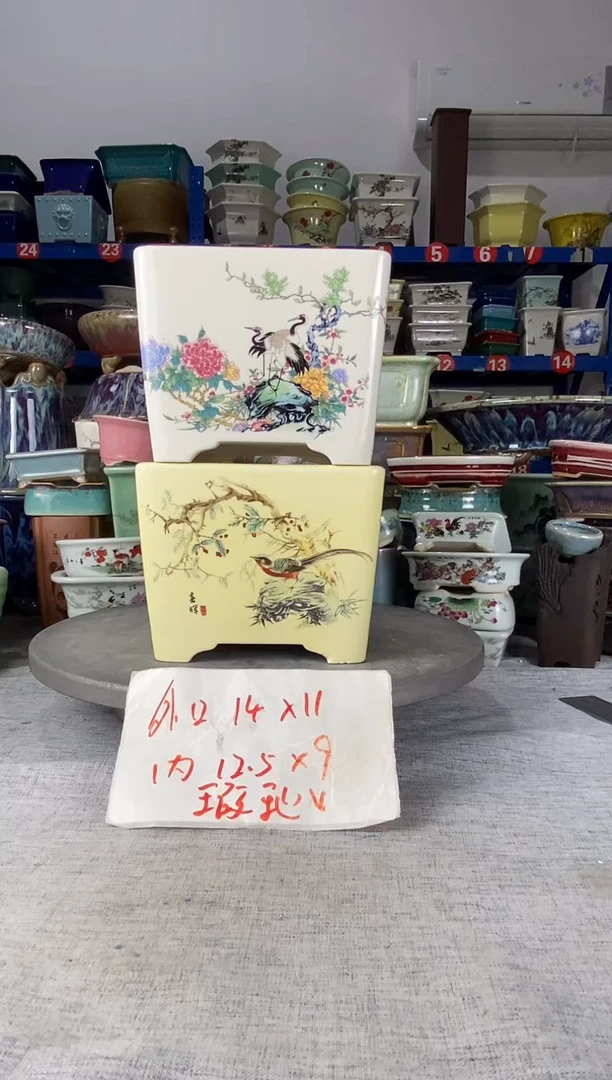 24
23
5
6
7
12
13
14
18
外口 14×11
内 12.5×9
瑕疵V